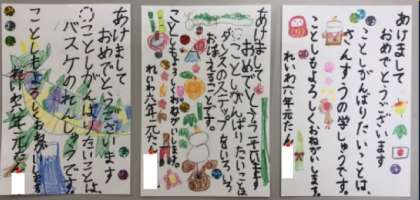 あけまして
おめでとうございます
ことしがんばりたいことは、
バスケのれんしゅうです。
ことしもよろしくおねがいします
れいわ六年元たん
あけまして
おめでとうございます
ことしがんばりたいことは
ダンスのステップをいろいろ
おぼえることです。
ことしもよろしくおねがいします。
れいわ六年元たん
あけまして
おめでとうございます
ことしがんばりたいことは、
さんすうの学しゅうです。
ことしもよろしくおねがいします。
れいわ六年元たん